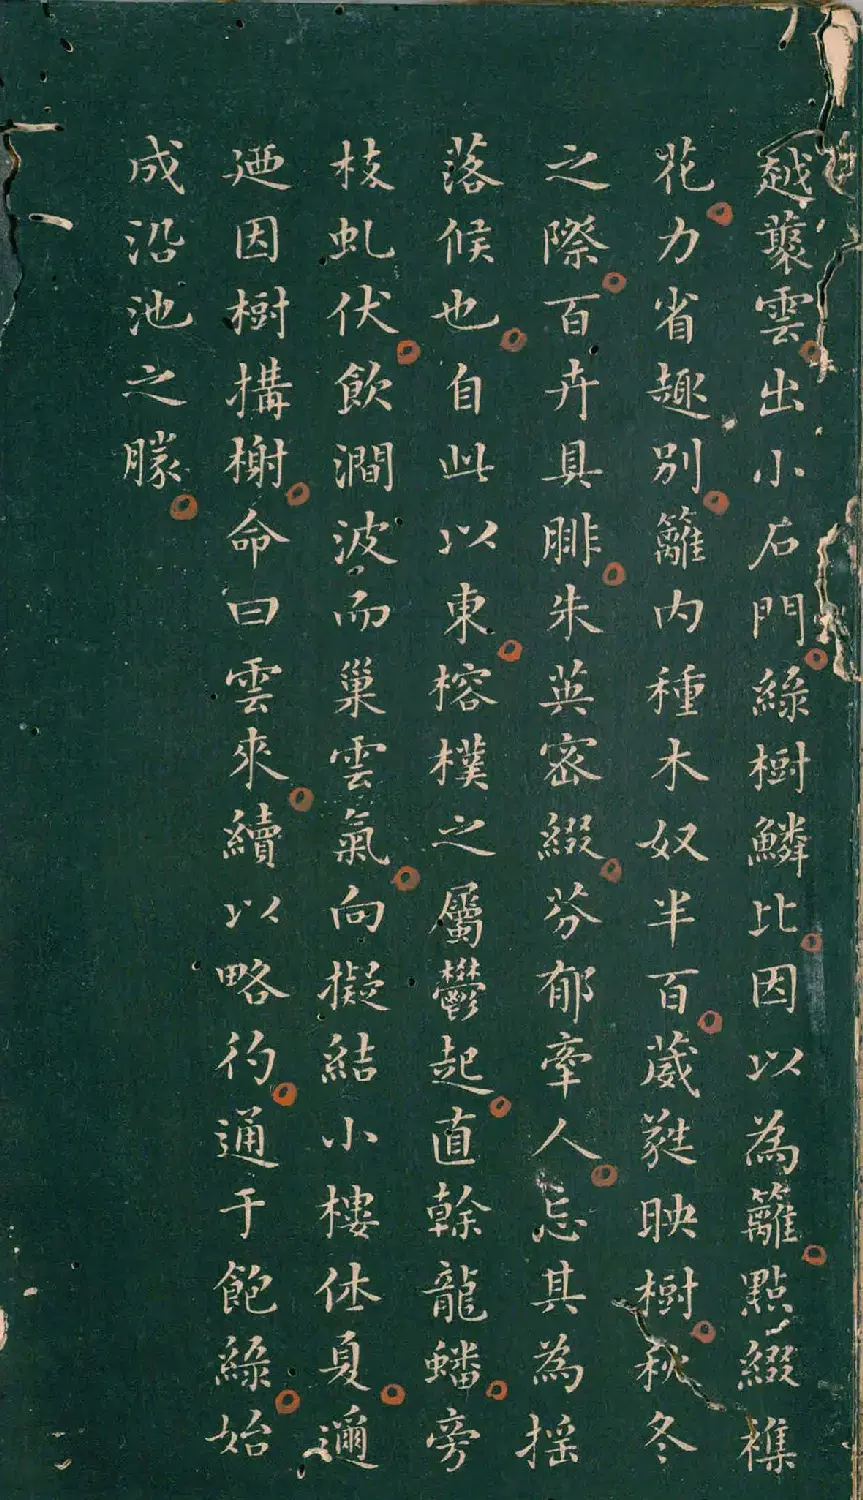 越藂雲出小石門綠樹鱗比因以為籬點綴襍
花力省趣別籬內種木奴半百葳蕤映樹秋冬
之際百卉具腓朱英密綴芬郁牽人忘其為揺
落候也自此以東榕樸之屬鬱起直榦龍蟠旁
枝虬伏飲澗波而巢雲氣向擬結小樓休夏邇
廼因樹搆榭命曰雲來續以略彴通于飽綠始
成沿池之勝